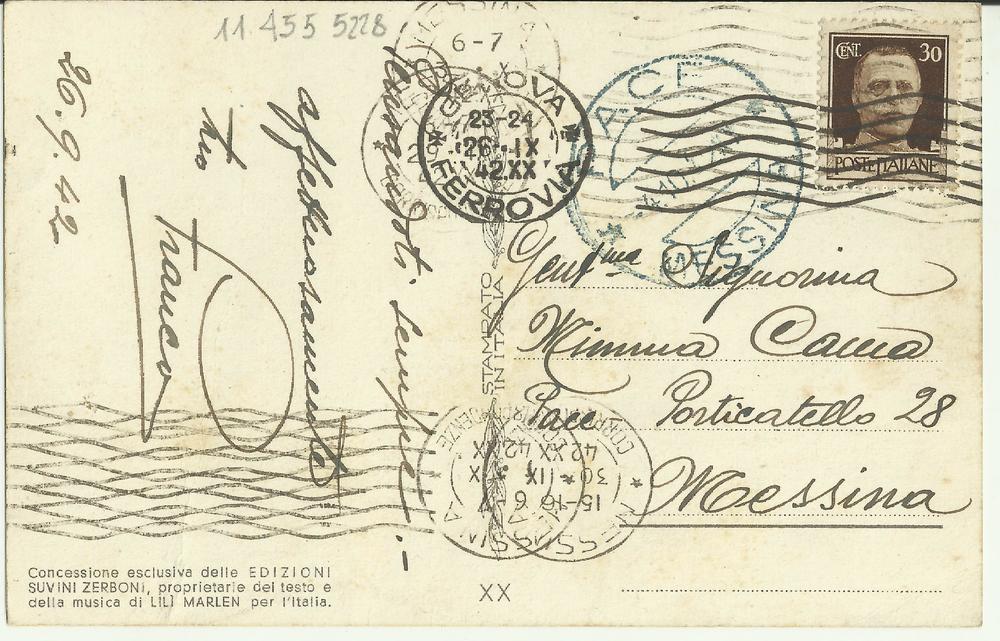 11.455 5228
26.9.42
Ricordati sempre.-
affettuosamente
tuo
Franco
GENOVA
23-24
26·IX
42.XX
FERROVIA
6-7
PACE
MESSINA
CENT. 30
POSTE ITALIANE
Gent.ma Signorina
Mimma
Pace Porticatello 28
Messina
STAMPATO
IN ITALIA
15-16
30 IX
42 XX
MESSINA
CORRISPONDENZE
Concessione esclusiva delle EDIZIONI
SUVINI ZERBONI, proprietarie del testo e
della musica di LILÌ MARLEN per l'Italia.
XX